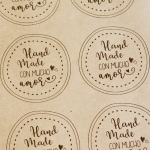 Hand
Made
CON MUCHO
amor
Hand
Made
CON MUCHO
amor
Hand
Made
CON MUCHO
amor
Hand
Made
CON MUCHO
amor
Hand
Made
Hand
Made
CON MUCHO